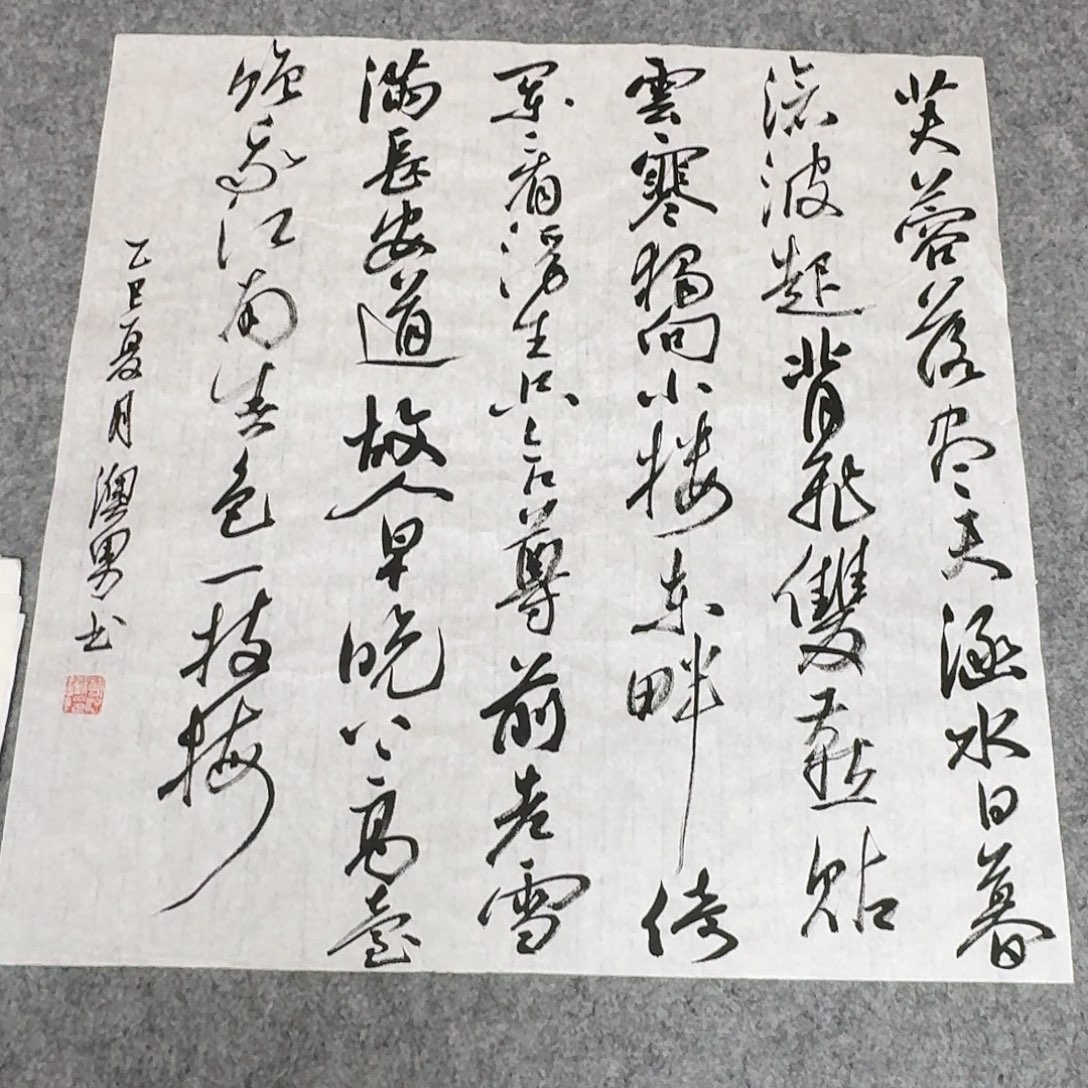 芙蓉落尽天涵水日暮
滄波起背飛雙燕貼
雲寒獨向小樓東畔倚
闌看浮生只合尊前老雪
滿長安道故人早晚上高臺
贈我江南春色一枝梅
乙巳夏月澳男书